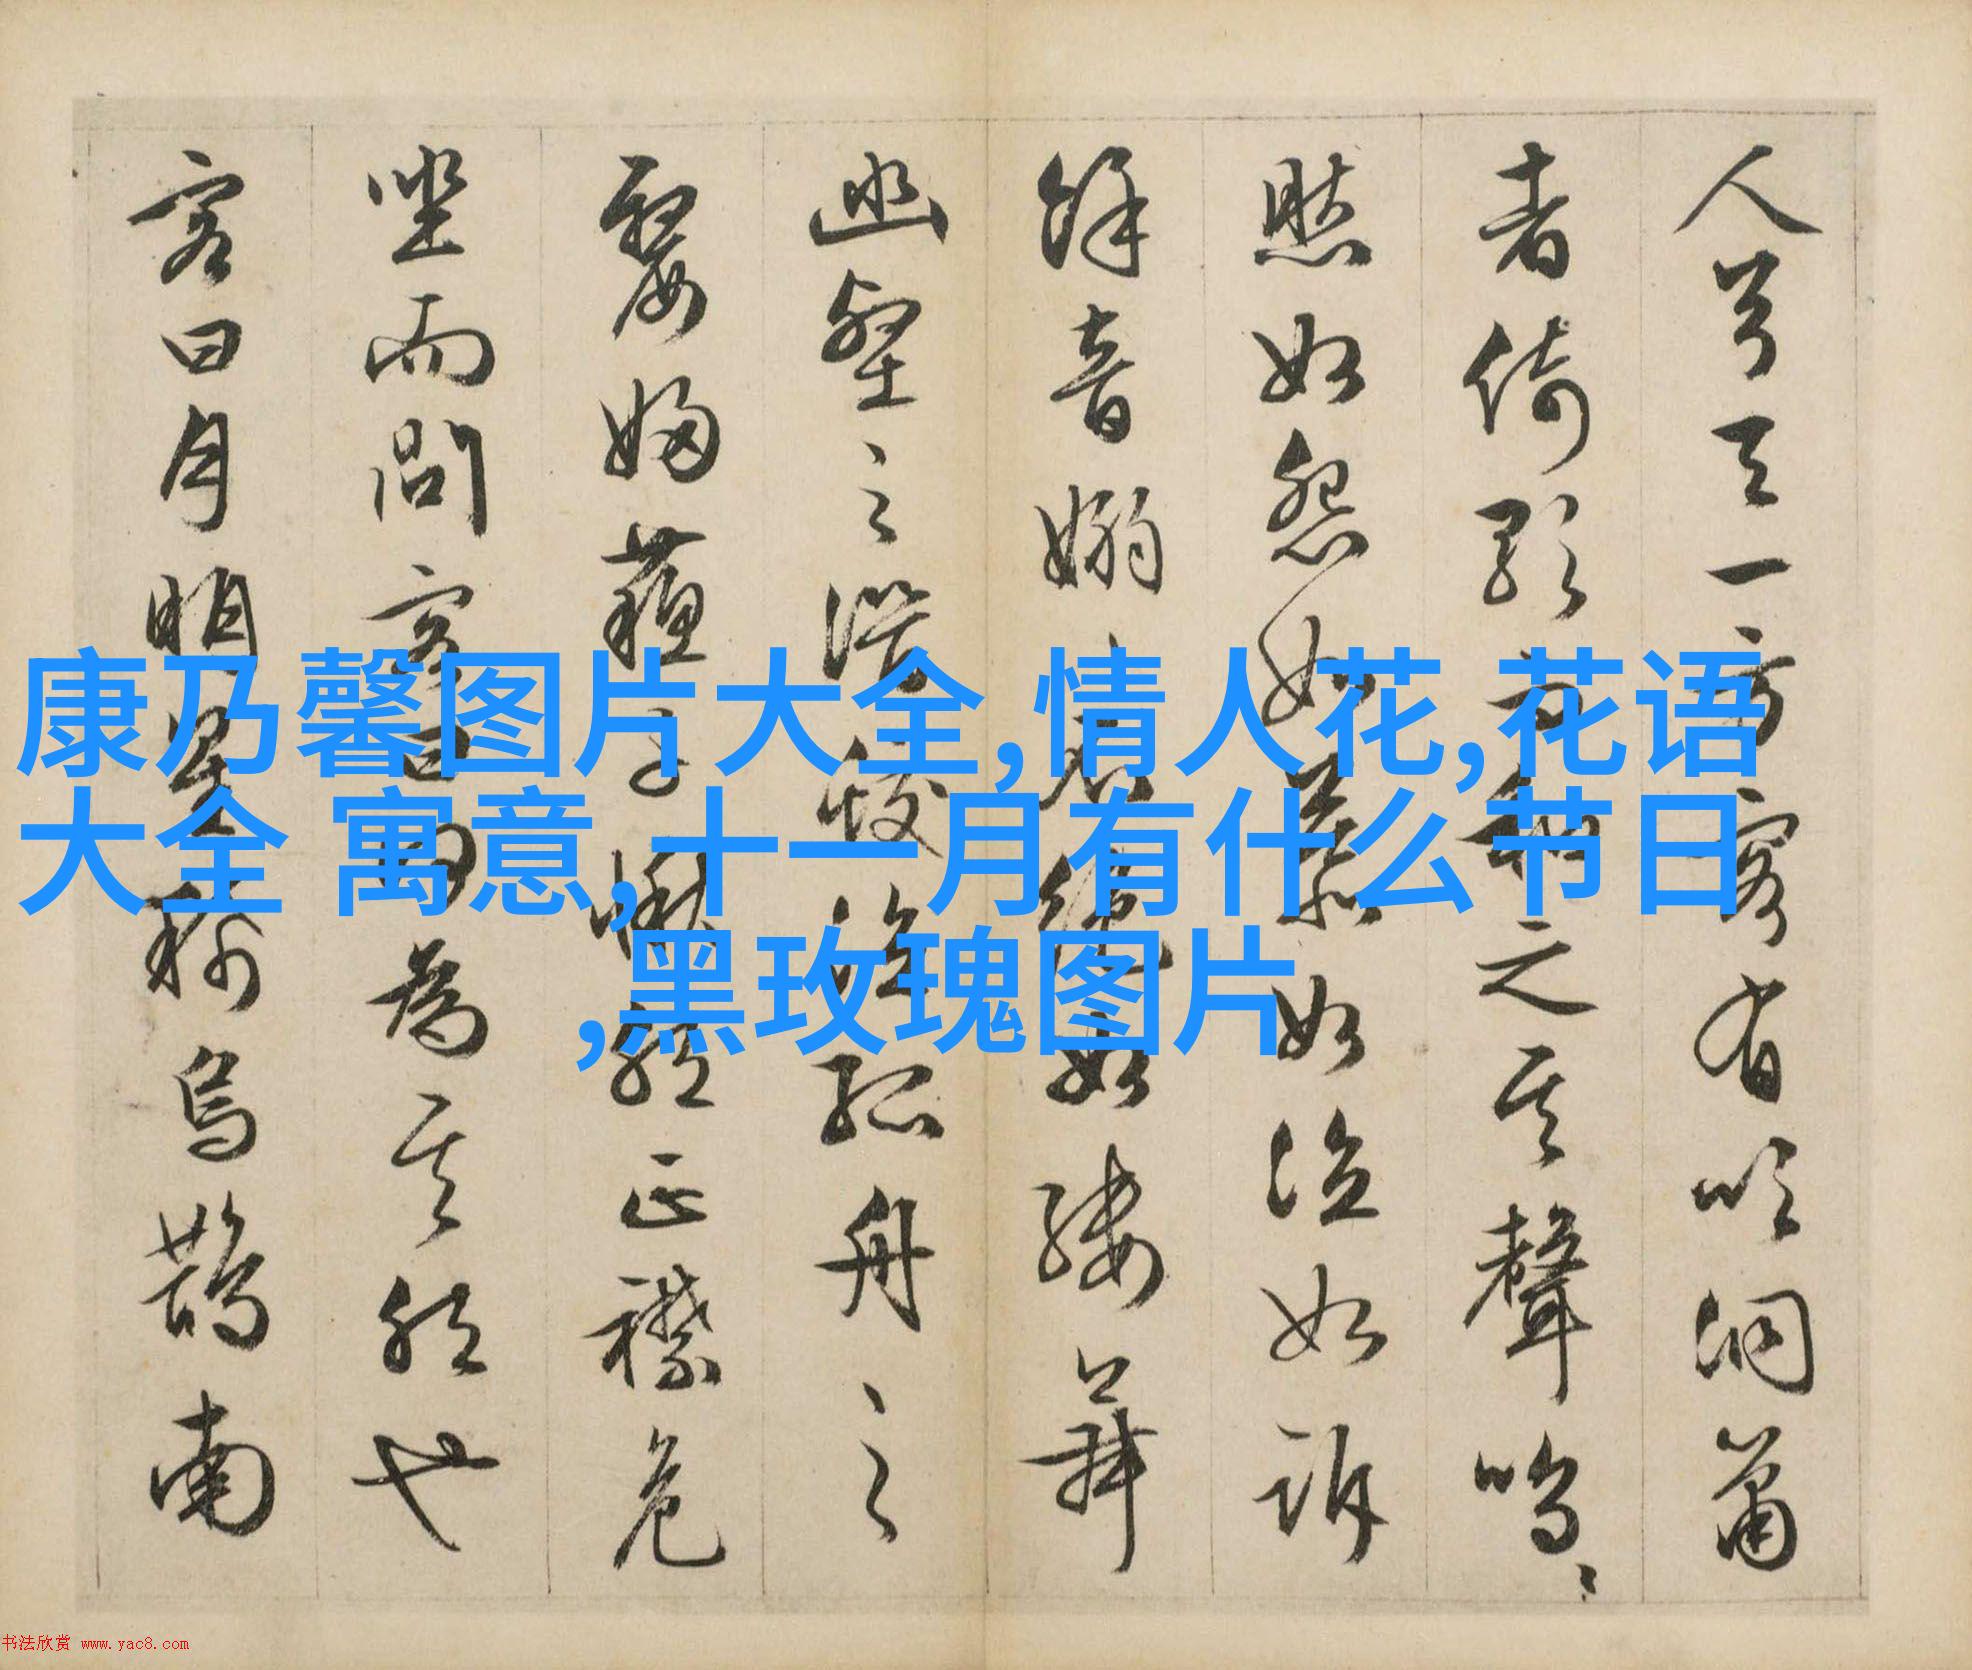 人兮天一方客有吹洞簫
者倚歌而和之其聲嗚〻
然如怨如慕如泣如訴
餘音嫋〻不絕如縷舞
幽壑之潛蛟泣孤舟之
嫠婦蘇子愀然正襟危
坐而問客曰何為其然也
客曰月明星稀烏鵲南
康乃馨图片大全,情人花,花语
大全 寓意,十一月有什么节日
,黑玫瑰图片
书法欣赏 www.yac8.com